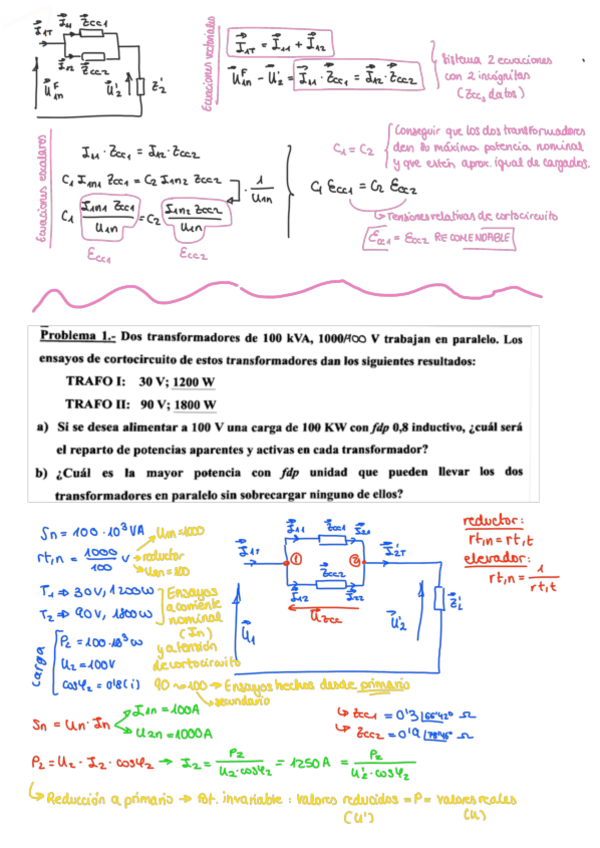 I⃗1T I⃗11 Z⃗cc1
I⃗12 Z⃗cc2
U⃗1nF U⃗2' Z⃗2'
Ecuaciones vectoriales
I⃗1T = I⃗11 + I⃗12
U⃗1nF - U⃗2' = I⃗11 · Z⃗cc1 = I⃗12 · Z⃗cc2
Sistema 2 ecuaciones
con 2 incógnitas
(Zcc, datos)
Ecuaciones escalares
I11 · Zcc1 = I12 · Zcc2
C1 I1n1 Zcc1 = C2 I1n2 Zcc2 · 1/U1n
C1 I1n1 Zcc1/U1n = C2 I1n2 Zcc2/U1n
Ecc1 Ecc2
C1 = C2
Conseguir que los dos transformadores
den su máxima potencia nominal
y que estén aprox. igual de cargados.
C1 Ecc1 = C2 Ecc2
↳ Tensiones relativas de cortocircuito
Ecc1 = Ecc2 RECOMENDABLE
Problema 1.- Dos transformadores de 100 kVA, 1000/100 V trabajan en paralelo. Los
ensayos de cortocircuito de estos transformadores dan los siguientes resultados:
TRAFO I: 30 V; 1200 W
TRAFO II: 90 V; 1800 W
a) Si se desea alimentar a 100 V una carga de 100 KW con fdp 0,8 inductivo, ¿cuál será
el reparto de potencias aparentes y activas en cada transformador?
b) ¿Cuál es la mayor potencia con fdp unidad que pueden llevar los dos
transformadores en paralelo sin sobrecargar ninguno de ellos?
Sn = 100 · 10³ VA
rt,n = 1000/100 V → reductor
U1n = 1000
U2n = 100
T1 ⇒ 30V, 1200W
T2 ⇒ 90V, 1800W
Ensayos
a corriente
nominal
(In)
y a tensión
de cortocircuito
carga
P2 = 100·10³ W
U2 = 100V
cosφ2 = 0'8 (i)
90 ~ 100 → Ensayos hechos desde primario
↳ secundario
I⃗1T I⃗11 Z⃗cc1 I⃗21
1 2 I⃗2T'
I⃗12 Z⃗cc2 I⃗22
U⃗zcc
U⃗1 U⃗2' Z⃗L'
reductor:
rt,n = rt,t
elevador:
rt,n = 1/rt,t
Sn = Un · In
I1n = 100A
U2n = 1000A
↳ Zcc1 = 0'3 Ω
↳ Zcc2 = 0'9 Ω
P2 = U2 · I2 · cosφ2 → I2 = P2/U2·cosφ2 = 1250A = P2/U2'·cosφ2
↳ Reducción a primario → Pot. invariable : valores reducidos = P = valores reales
(U') (U)